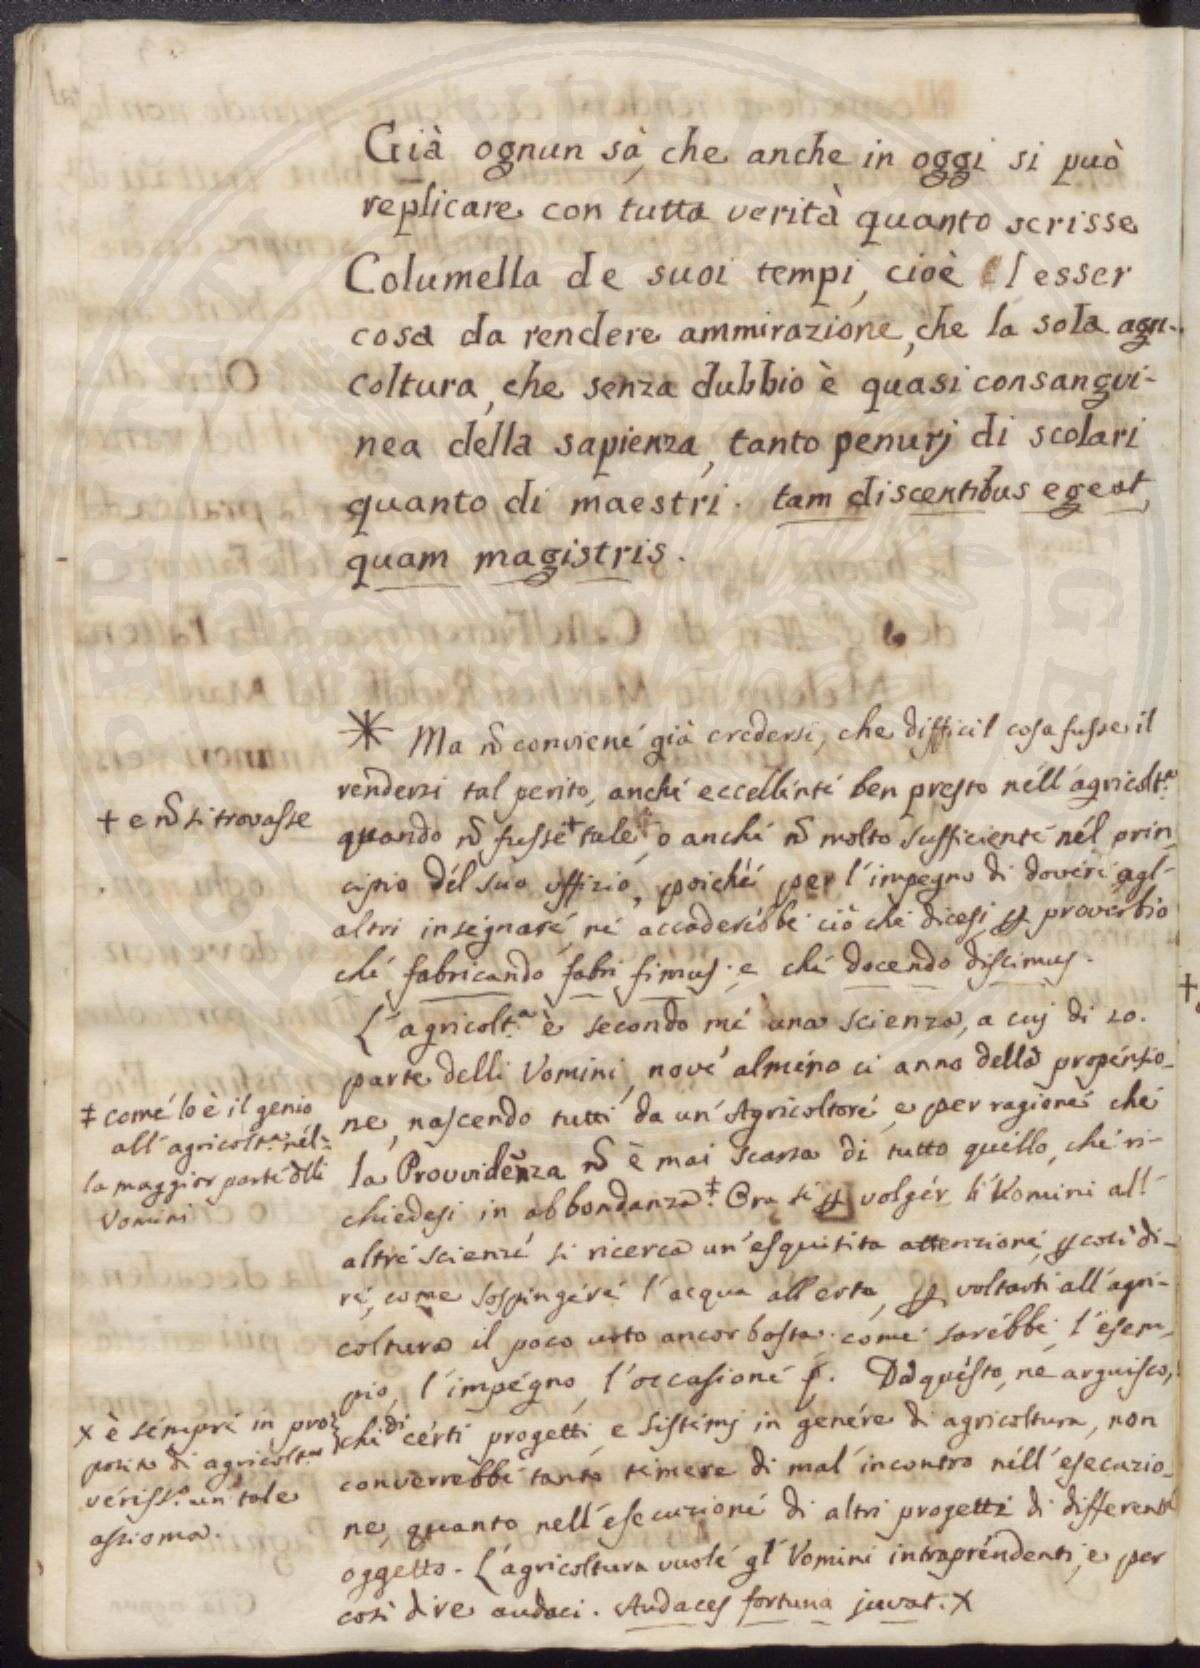 Già ognun sà, che anche in oggi si può
replicare con tutta verità quanto scrisse
Columella de suoi tempi, cioè l'esser
cosa da rendere ammirazione, che la sola agri-
coltura, che senza dubbio è quasi consangui-
nea della sapienza, tanto penurj di scolari
quanto di maestri. tam discentibus egeat,
quam magistris.
* Ma nō conviene già credersi, che difficil cosa fusse il
rendersi tal perito, anche eccellente ben presto nell'agricolt.ª
quando nō fusse + tale, o anche nō molto sufficiente nel prin
cipio del suo uffizio, poiche per l'impegno di dovere agl'
altri insegnare, ne accaderebbe ciò che dicesi ꝑ proverbio
che fabricando fabri fimus; e che docendo discimus.
L'agricolt.ª è secondo me una scienza, a cuj di 10.
parte delli Vomini, nove almeno ci anno della propensio-
ne, nascendo tutti da un'Agricoltore, e per ragione che
la Provvidenza nō è mai scarsa di tutto quello, che ri-
chiedesi in abbondanza ‡. Ora se ꝑ volger li Vomini all'
altre scienze si ricerca un'esquisita attenzione, ꝑ così di-
re, come sospingere l'acqua all'erta, ꝑ voltarsi all'agri-
coltura il poco urto ancor basta, come sarebbe, l'esem
pio, l'impegno, l'occasione &. Da questo, ne arguisco,
che di certi progetti, e sistemj in genere di agricoltura, non
converrebbe tanto temere di mal'incontro nell'esecuzio-
ne, quanto nell'esecuzione di altri progetti di differente
oggetto. L'agricoltura vuole gl'Vomini intraprendenti, e per
così dire audaci. Audaces fortuna juvat. X
+ e nō si trovasse
‡ come lo è il genio
all'agricolt.ª nel-
la maggior parte dlli
Vomini
X è sempre in pro-
posito di agricolt.ª
veriss.º un tale
assioma.